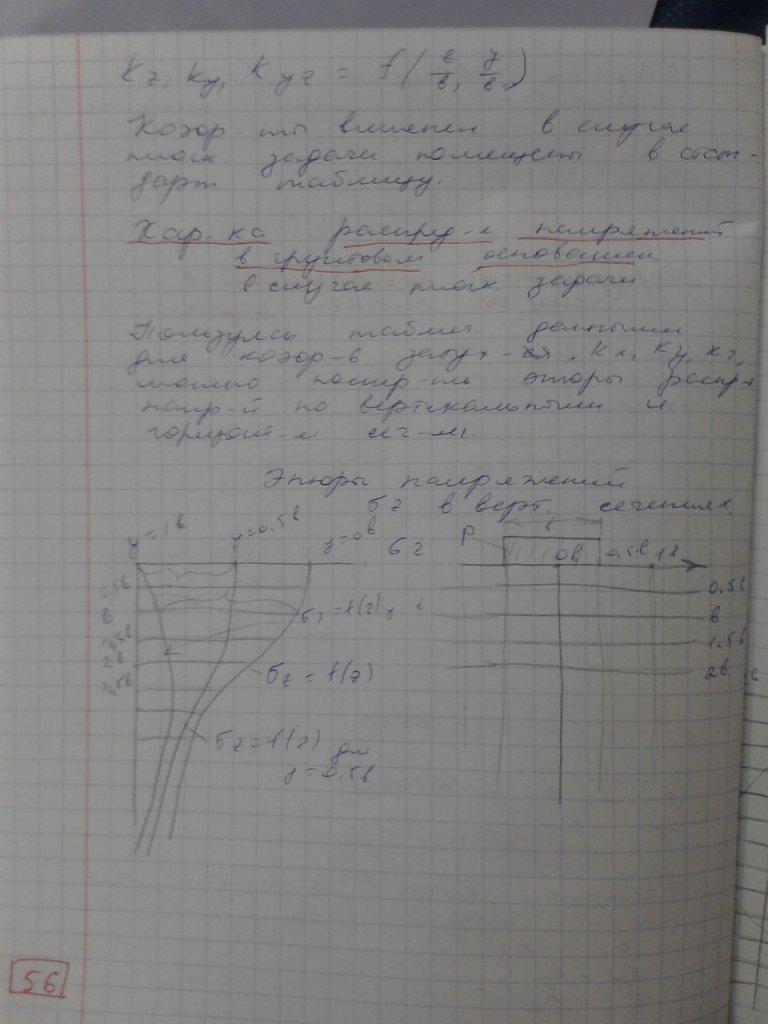 Kz, Ky, Kyz = f( z/в, y/в )
Коэф-ты влияния в случае
плоск. задачи помещены в стан-
дарт таблицу.
Хар-ка распред-я напряжений
в грунтовом основании
в случае плоск задачи
Пользуясь таблич. данными
для коэф-в Kx, Ky, Kz,
можно постр-ть эпюры распр-я
напр-й по вертикальным и
горизонт-м сеч-м
Эпюры напряжений
бz в верт. сечениях.
y=1в y=0,5в y=0в бz
P в 0в 0,5в 1в
0,5в 0,5в
в в
1,5в 1,5в
2в 2в
2,5в
бz = f(z)
бz = f(z)
бz = f(z) для
y=0.5в
56